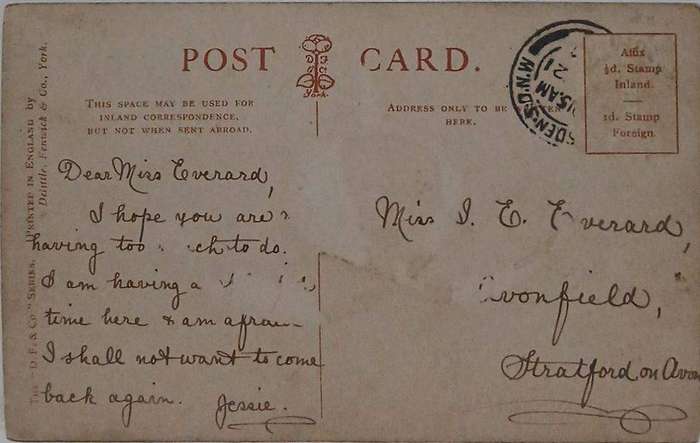 POST CARD.
York.
THIS SPACE MAY BE USED FOR
INLAND CORRESPONDENCE,
BUT NOT WHEN SENT ABROAD.
ADDRESS ONLY TO BE
HERE.
Affix
½d. Stamp
Inland.
1d. Stamp
Foreign.
SDEN.S
M.N.D
15 AM
21
"D.F. & Co." SERIES. PRINTED IN ENGLAND by
Delittle, Fenwick & Co., York.
Dear Miss Everard,
I hope you are
having too to do.
I am having a
time here & am
I shall not want to come
back again. Jessie.
Miss I. E. Everard,
Stratford on Avon